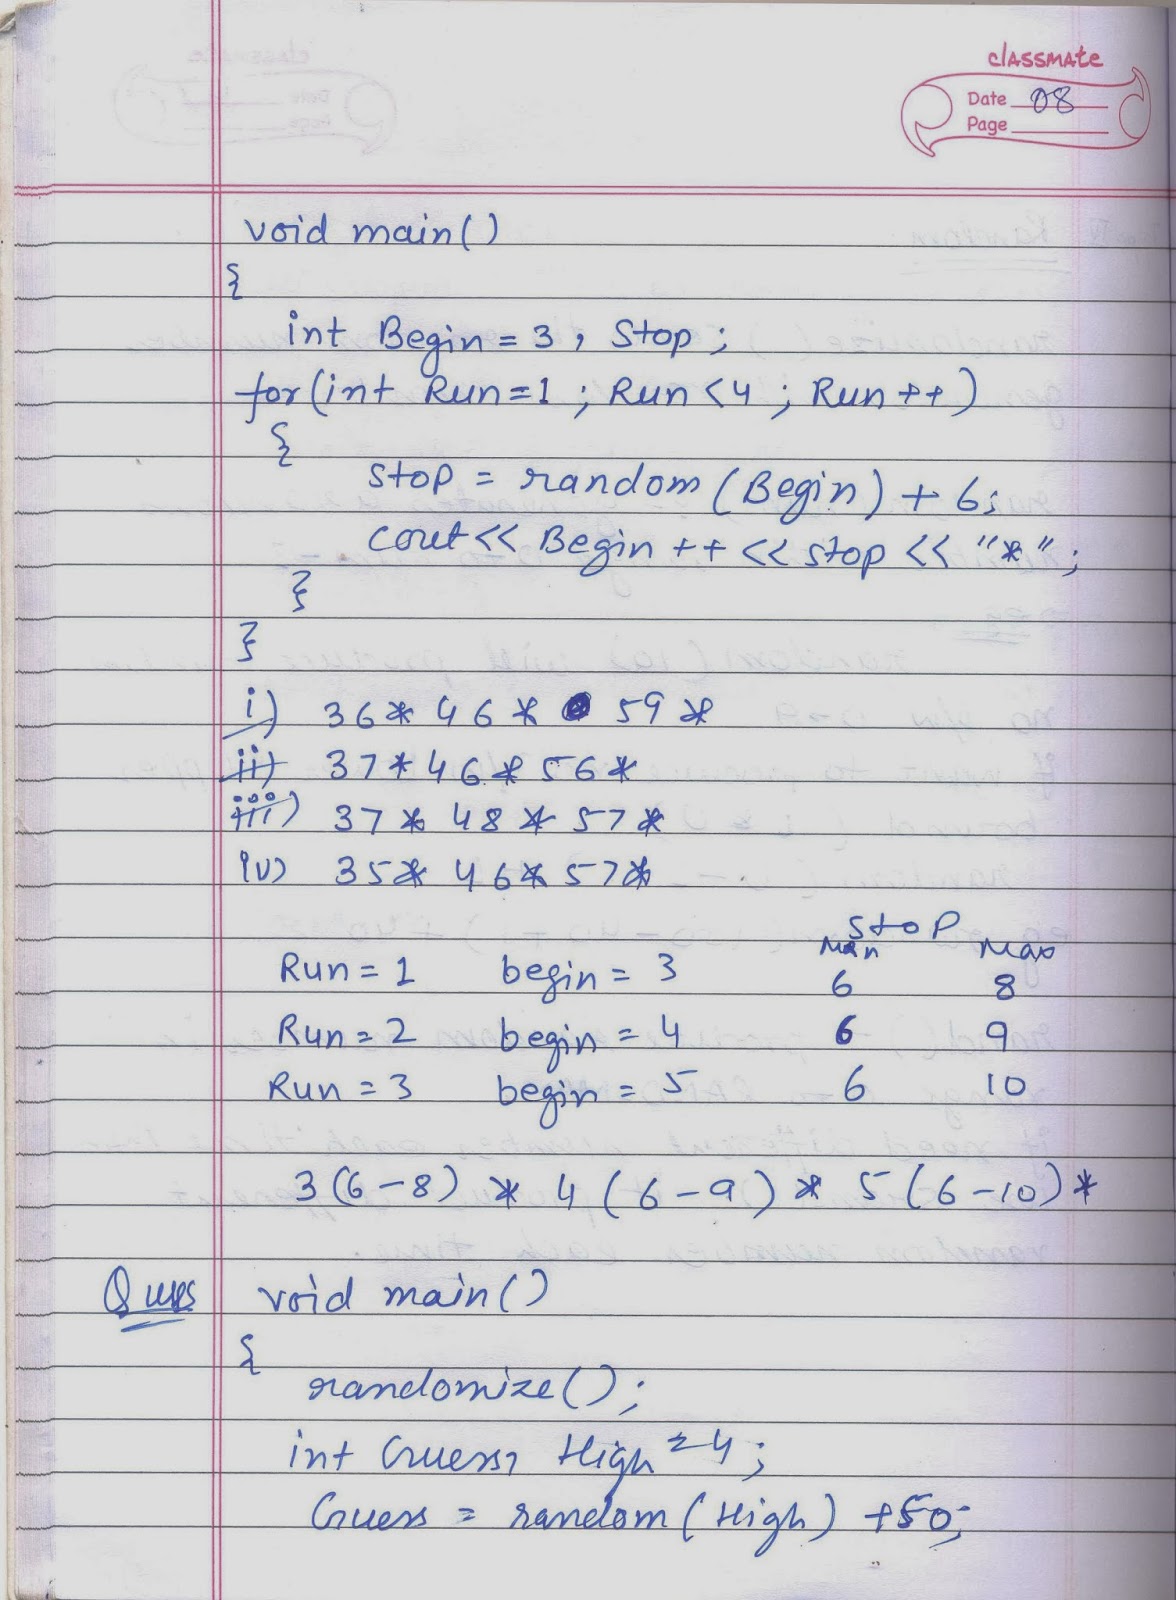 classmate
Date 08
Page
void main()
{
int Begin = 3, Stop;
for(int Run=1 ; Run<4 ; Run++)
{
Stop = random (Begin) + 6;
cout<< Begin ++ << stop << "*" ;
}
}
i) 36* 46* 59*
ii) 37*46*56*
iii) 37* 48* 57*
iv) 35* 46* 57*
Stop
Min Max
Run = 1 begin = 3 6 8
Run = 2 begin = 4 6 9
Run = 3 begin = 5 6 10
3(6-8) * 4 (6-9) * 5 (6-10) *
Ques void main()
{
randomize();
int Guess, High = 4;
Guess = random (High) +50;